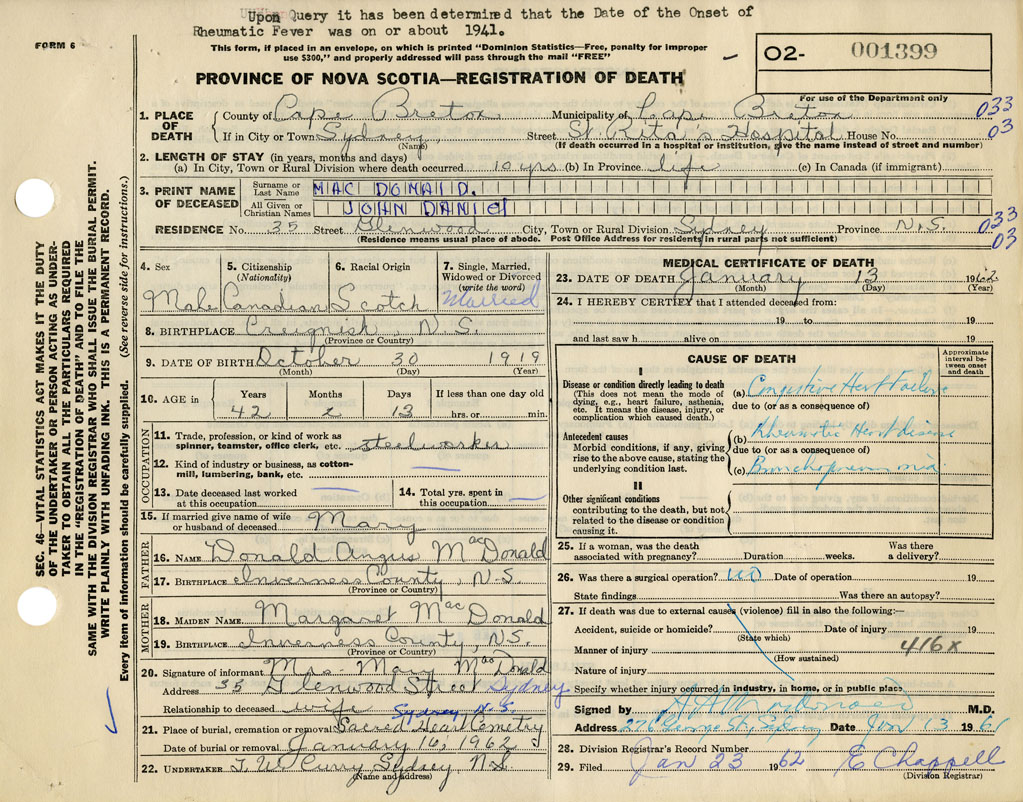 Upon Query it has been determined that the Date of the Onset of
Rheumatic Fever was on or about 1941.
FORM 6
This form, if placed in an envelope, on which is printed "Dominion Statistics—Free, penalty for improper
use $300," and properly addressed will pass through the mail "FREE"
02- 001399
For use of the Department only
PROVINCE OF NOVA SCOTIA—REGISTRATION OF DEATH
1. PLACE OF DEATH
County of Cape Breton Municipality of Cape Breton 033
If in City or Town Sydney Street St. Rita's Hospital House No. 03
(Name) (If death occurred in a hospital or institution, give the name instead of street and number)
2. LENGTH OF STAY (in years, months and days)
(a) In City, Town or Rural Division where death occurred 10 yrs (b) In Province life (c) In Canada (if immigrant)
3. PRINT NAME OF DECEASED
Surname or Last Name MAC DONALD.
All Given or Christian Names JOHN DANIEL
RESIDENCE No. 35 Street Glenwood City, Town or Rural Division Sydney Province N.S. 033
03
(Residence means usual place of abode. Post Office Address for residents in rural parts not sufficient)
4. Sex Male
5. Citizenship (Nationality) Canadian
6. Racial Origin Scotch
7. Single, Married, Widowed or Divorced (write the word) Married
8. BIRTHPLACE Creignish, N.S.
(Province or Country)
9. DATE OF BIRTH October 30 1919
(Month) (Day) (Year)
10. AGE in Years Months Days If less than one day old
42 2 13 hrs. or min.
OCCUPATION
11. Trade, profession, or kind of work as spinner, teamster, office clerk, etc. steelworker
12. Kind of industry or business, as cotton-mill, lumbering, bank, etc. —
13. Date deceased last worked at this occupation —
14. Total yrs. spent in this occupation —
15. If married give name of wife or husband of deceased Mary
FATHER
16. NAME Donald Angus MacDonald
17. BIRTHPLACE Inverness County, N.S.
(Province or Country)
MOTHER
18. MAIDEN NAME Margaret MacDonald
19. BIRTHPLACE Inverness County, N.S.
(Province or Country)
20. Signature of informant Mrs. Mary MacDonald
Address 35 Glenwood Street Sydney
Relationship to deceased wife Sydney N.S.
21. Place of burial, cremation or removal Sacred Heart Cemetry
Date of burial or removal January 16, 1962
22. UNDERTAKER T. W. Curry Sydney N.S.
(Name and Address)
MEDICAL CERTIFICATE OF DEATH
23. DATE OF DEATH January 13 1962
(Month) (Day) (Year)
24. I HEREBY CERTIFY that I attended deceased from:
19 to 19
and last saw h alive on 19
CAUSE OF DEATH
Approximate interval between onset and death
I
Disease or condition directly leading to death
(This does not mean the mode of dying, e.g., heart failure, asthenia, etc. It means the disease, injury, or complication which caused death.)
(a) Congestive Heart Failure
due to (or as a consequence of)
Antecedent causes
Morbid conditions, if any, giving rise to the above cause, stating the underlying condition last.
(b) Rheumatic Heart Disease
due to (or as a consequence of)
(c) Bronchopneumonia
II
Other significant conditions
contributing to the death, but not related to the disease or condition causing it.
25. If a woman, was the death associated with pregnancy? Duration weeks. Was there a delivery?
26. Was there a surgical operation? no Date of operation 19
State findings Was there an autopsy?
27. If death was due to external causes (violence) fill in also the following:—
Accident, suicide or homicide? Date of injury 19
(State which)
Manner of injury 416x
(How sustained)
Nature of injury
Specify whether injury occurred in industry, in home, or in public place
Signed by M.D.
Address 276 George St, Sydney Date Jan 13 1961
28. Division Registrar's Record Number
29. Filed Jan 23 1962 E Chappell
(Division Registrar)
SEC. 46—VITAL STATISTICS ACT MAKES IT THE DUTY
OF THE UNDERTAKER OR PERSON ACTING AS UNDER-
TAKER TO OBTAIN ALL THE PARTICULARS REQUIRED
IN THE "REGISTRATION OF DEATH" AND TO FILE THE
SAME WITH THE DIVISION REGISTRAR WHO SHALL ISSUE THE BURIAL PERMIT.
WRITE PLAINLY WITH UNFADING INK. THIS IS A PERMANENT RECORD.
Every item of information should be carefully supplied. (See reverse side for instructions.)